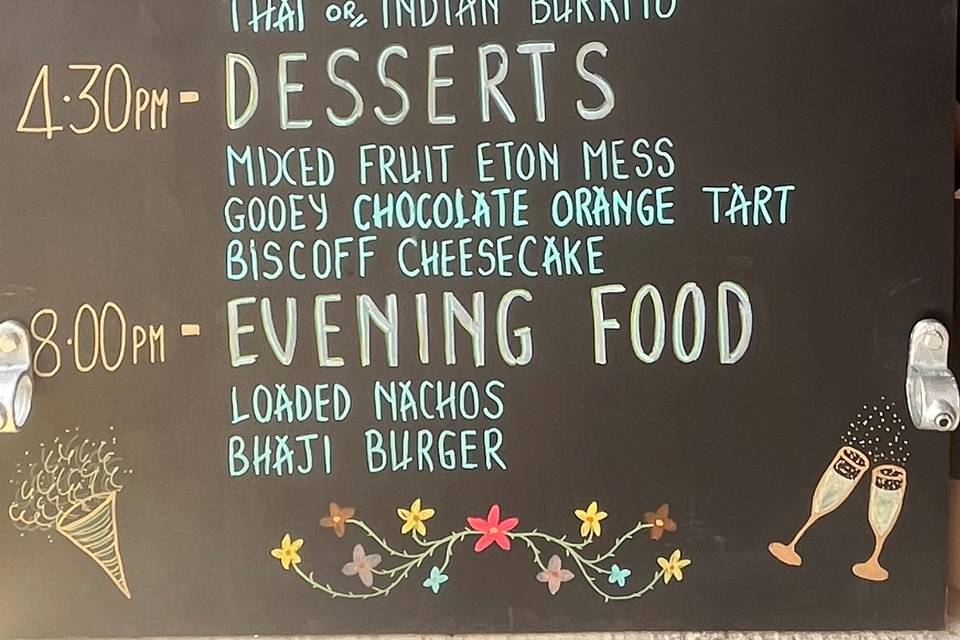 THAI OR INDIAN BURRITO
4.30PM - DESSERTS
MIXED FRUIT ETON MESS
GOOEY CHOCOLATE ORANGE TART
BISCOFF CHEESECAKE
8.00PM - EVENING FOOD
LOADED NACHOS
BHAJI BURGER